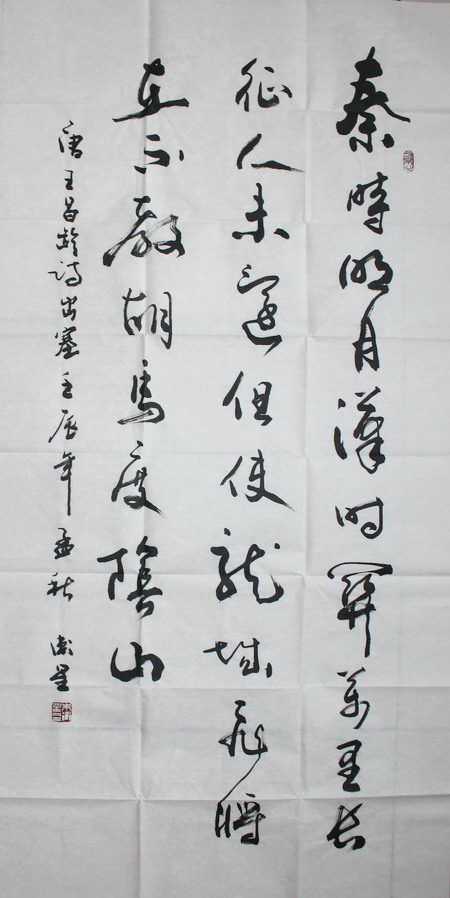 秦時明月漢时關萬里長
征人未還但使龍城飛將
在不教胡馬度陰山
唐王昌齡詩出塞壬辰年孟秋